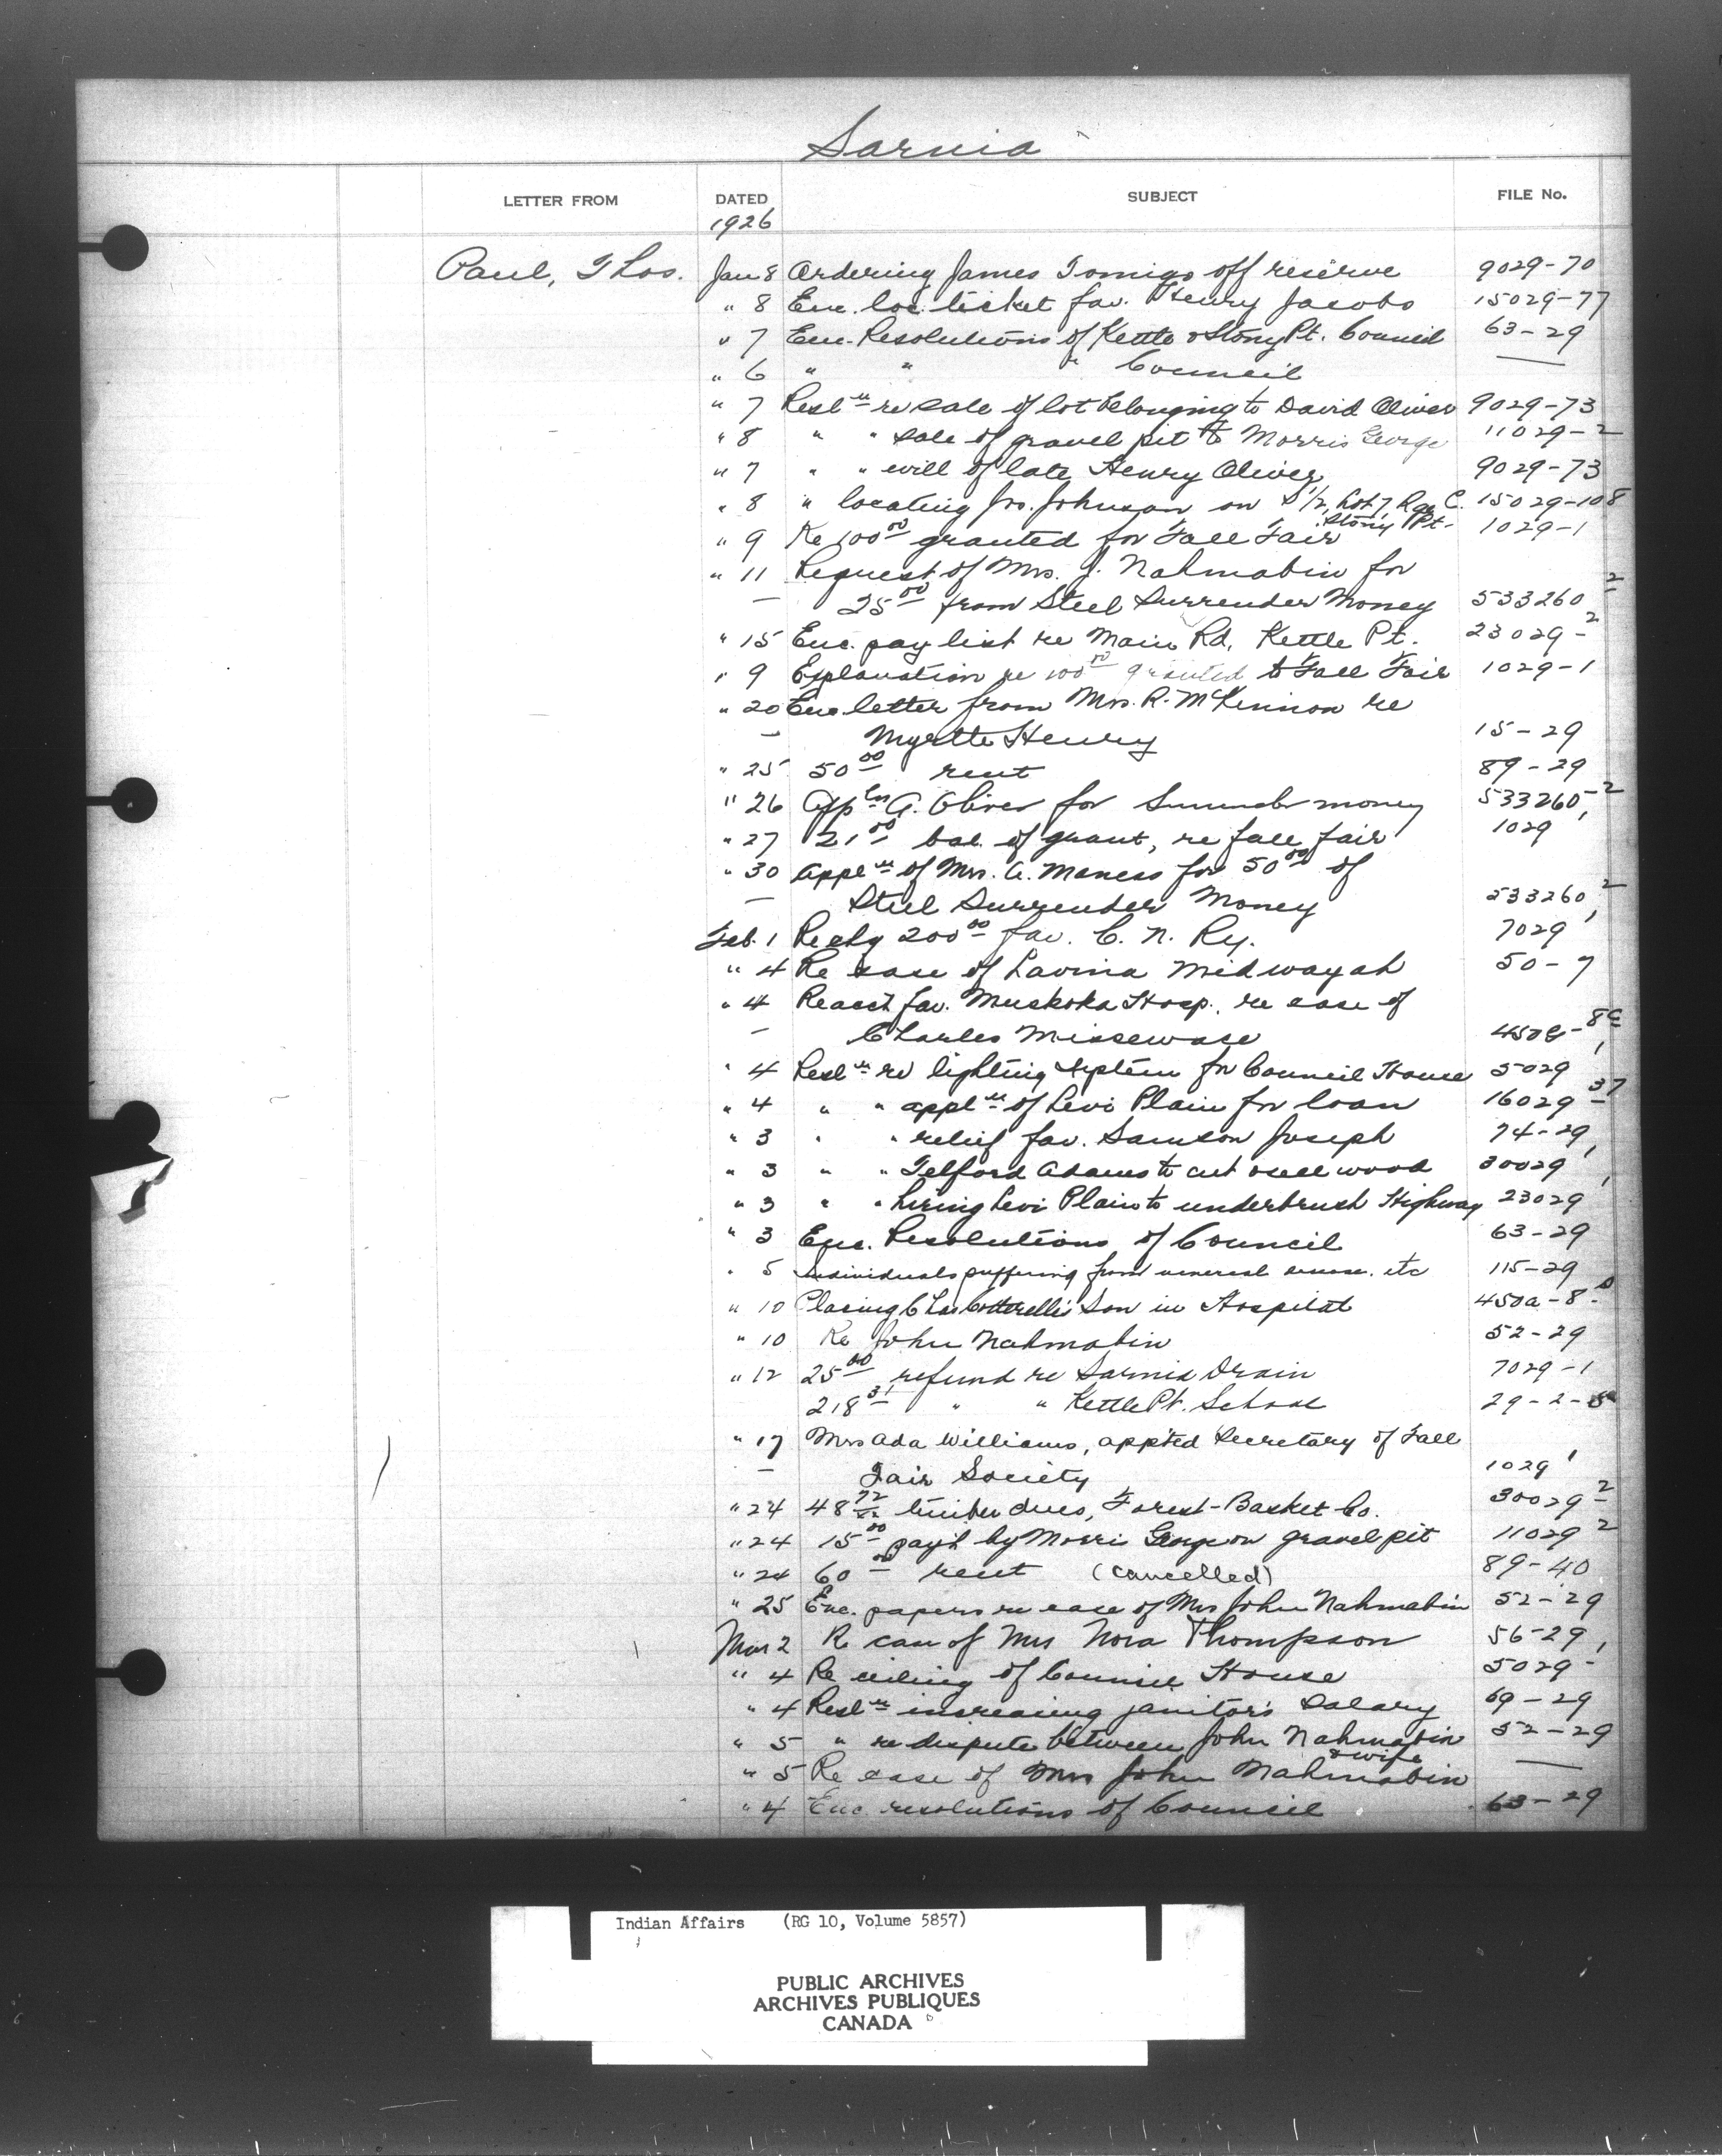 Sarnia
LETTER FROM DATED SUBJECT FILE No.
1926
Paul, Thos. Jan 8 Ordering James off reserve 9029-70
" 8 Enc. loc. ticket fav. Henry Jacobs 15029-77
" 7 Enc. Resolutions of Kettle & Stony Pt. Council 63-29
" 6 " " " Council —
" 7 Resl'n re sale of lot belonging to David Oliver 9029-73
" 8 " " sale of gravel pit to Morris George 11029-2
" 7 " " will of late Henry Oliver 9029-73
" 8 " locating Jos. Johnson on S 1/2, Lot 7, Rge C. 15029-108
Stony Pt.
" 9 Re 100 00 granted for Fall Fair 1029-1
" 11 Request of Mrs. J. Nahmabin for
— 25 00 from Steel Surrender Money 533260-2
" 15 Enc. pay list re Main Rd. Kettle Pt. 23029-2
" 9 Explanation re 100 00 granted to Fall Fair 1029-1
" 20 Enc letter from Mrs. R. McKinnon re
— Myrtle Henry 15-29
" 25 50 00 rent 89-29
" 26 App'ln A. Oliver for Surrender money 533260-2
" 27 21 00 bal. of grant, re fall fair 1029-1
" 30 Appl'n of Mrs. A. Maness for 50 00 of
— Steel Surrender Money 533260-2
Feb. 1 Re chq 200 00 fav. C. N. Ry. 7029-1
" 4 Re case of Lavina Midwayah 50-7
" 4 Re acct fav. Muskoka Hosp. re case of
— Charles Missewace
" 4 Resl'n re lighting system for Council House 5029-1
" 4 " " appl'n of Levi Plain for loan 16029-37
" 3 " " relief fav. Samson Joseph 74-29
" 3 " " Telford Adams to cut & sell wood 30029-1
" 3 " " hiring Levi Plain to underbrush Highway 23029-1
" 3 Enc. Resolutions of Council 63-29
" 5 Individuals suffering from venereal disease. etc 115-29
" 10 Placing Chas Cotterelli Son in Hospital 450a-8
" 10 Re John Nahmabin 52-29
" 12 25 00 refund re Sarnia Drain 7029-1
218 31 " " Kettle Pt. School 29-2-5
" 17 Mrs Ada Williams, app'ted Secretary of Fall
— Fair Society 1029-1
" 24 48 72 timber dues, Forest-Basket Co. 30029-2
" 24 15 00 pay't by Morris George on gravel pit 11029-2
" 24 60 00 rent (cancelled) 89-40
" 25 Enc. papers re case of Mrs John Nahmabin 52-29
Mar 2 Re case of Mrs Nora Thompson 56-29
" 4 Re ceiling of Council House 5029-1
" 4 Resl'n increasing janitor's salary 69-29
" 5 " re dispute between John Nahmabin 52-29
& wife
" 5 Re case of Mrs John Nahmabin —
" 4 Enc. resolutions of Council 63-29
Indian Affairs (RG 10, Volume 5857)
PUBLIC ARCHIVES
ARCHIVES PUBLIQUES
CANADA